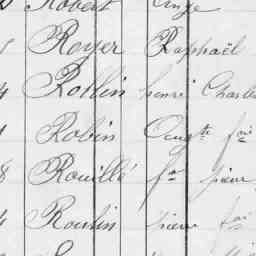 Robert Ange
Royer Raphaël
4 Rollin henri Charles
1 Robin Augte
8 Rouillé fois pierre
4 Roulin pierre